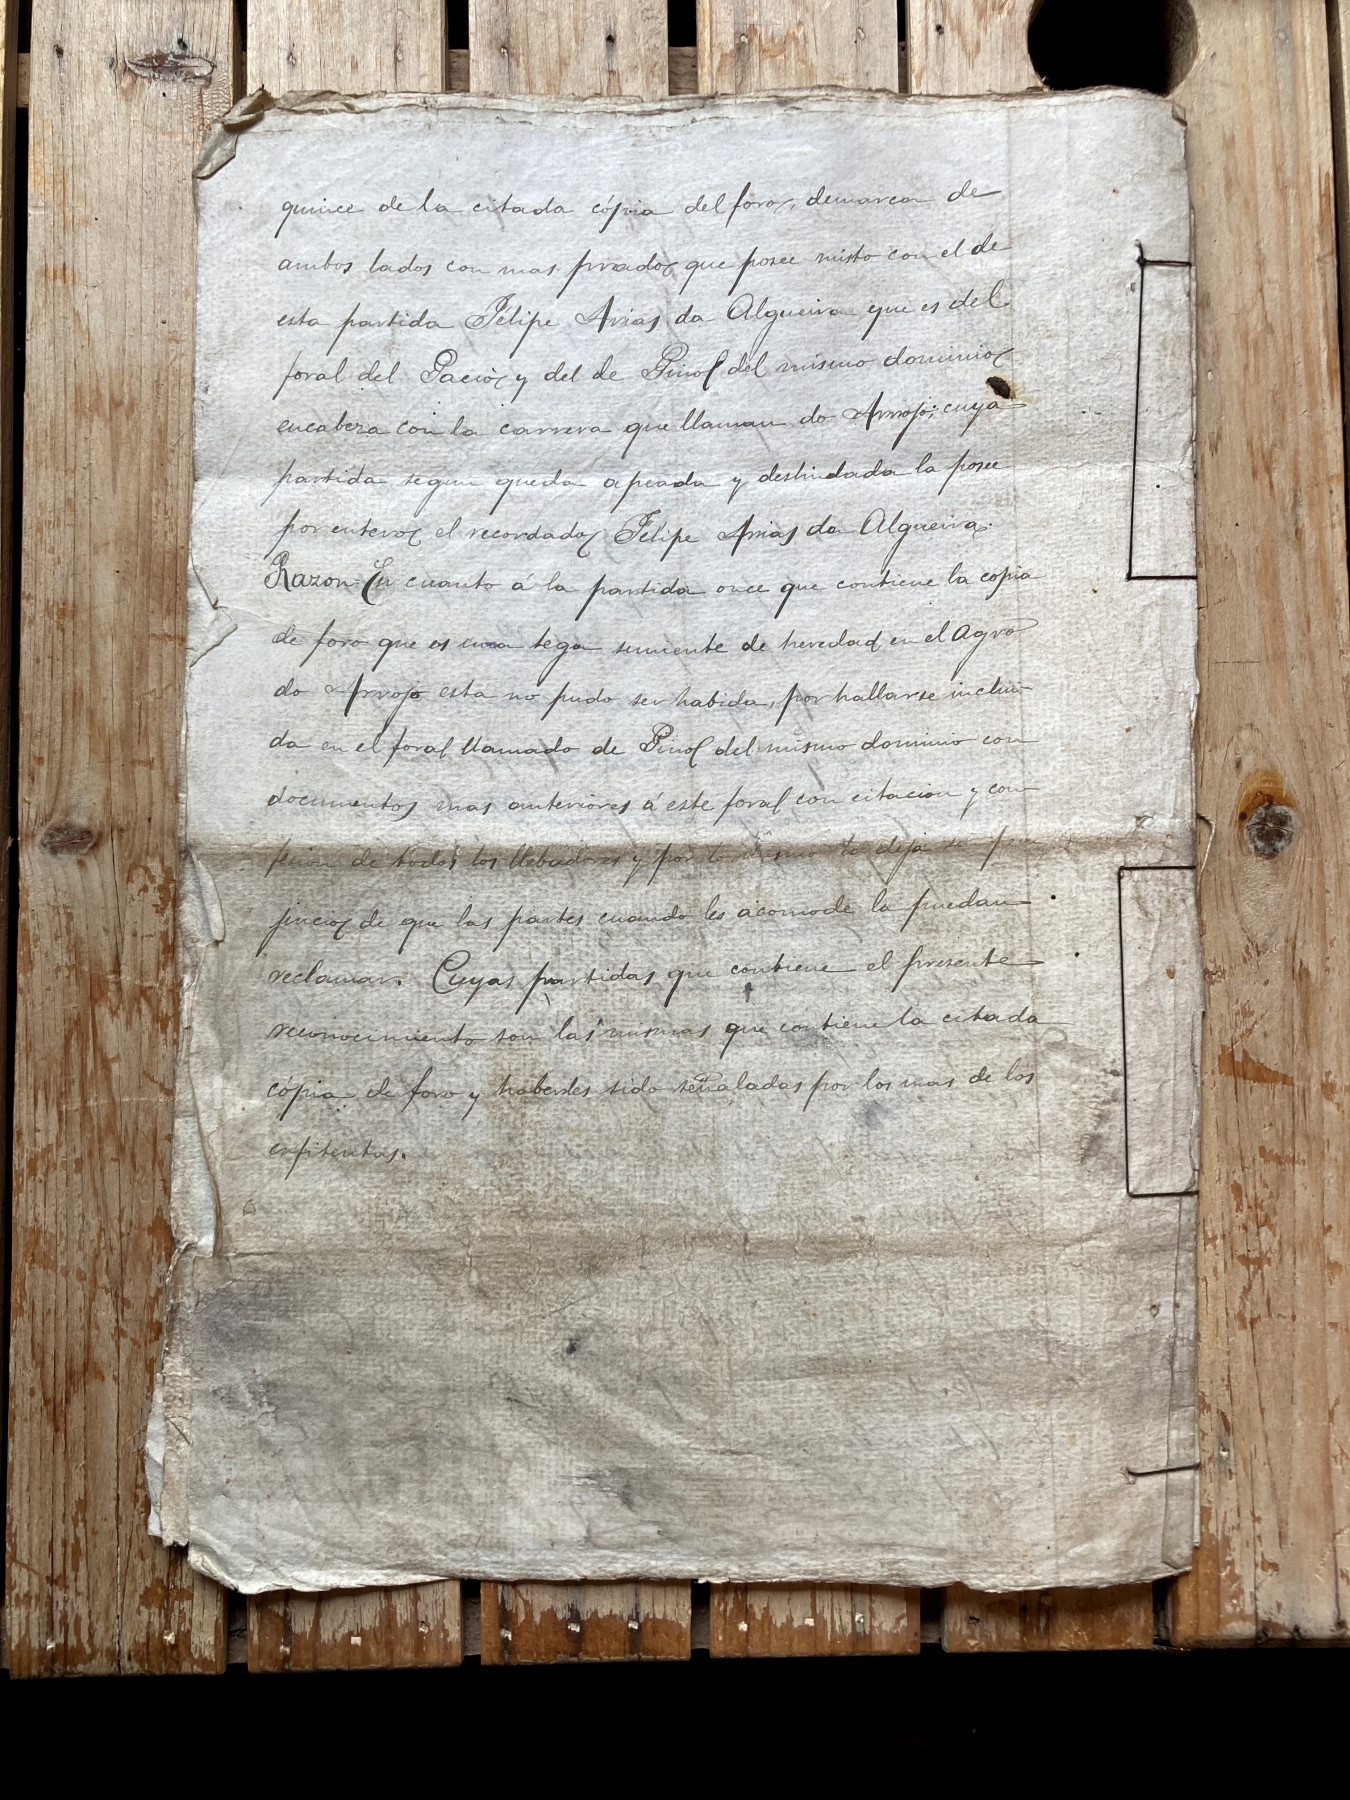 quince de la citada cópia del foro, demarca de
ambos lados con mas prado que posee misto con el de
esta partida Felipe Arias da Algueira que es del
foral del Pacio y del de Piñol del mismo dominio
encabeza con la carrera que llaman do Arrojo; cuya
partida segun queda apeada y deslindada la posee
por entero el recordado Felipe Arias da Algueira.
Razon. En cuanto á la partida once que contiene la copia
de foro que es una tega semiente de heredad en el Agro
do Arrojo esta no pudo ser habida, por hallarse inclui-
da en el foral llamado de Piñol del mismo dominio con
documentos mas anteriores á este foral con citacion y con
fesion de todos los llebadores y por lo mismo se deja
juicio de que las partes cuando les acomode la puedan
reclamar. Cuyas partidas que contiene el presente
reconocimiento son las mismas que contiene la citada
cópia de foro y haberles sido señaladas por los mas de los
enfiteutas.